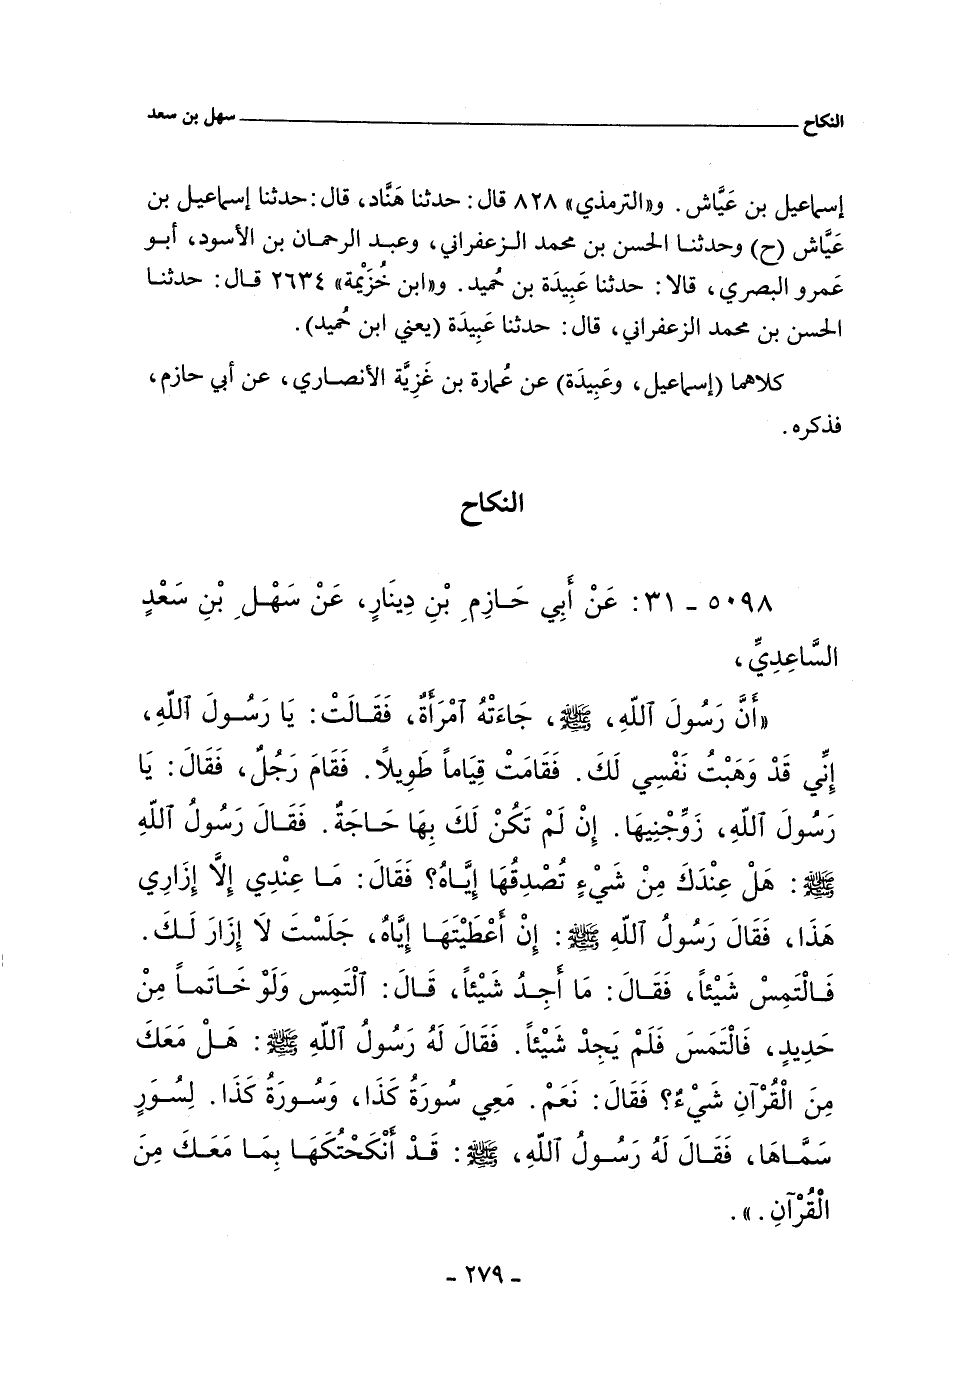 النكاح ــــــــــ سهل بن سعد
إسماعيل بن عَيَّاش. و«الترمذي» ٨٢٨ قال: حدثنا هَنَّاد، قال: حدثنا إسماعيل بن
عَيَّاش (ح) وحدثنا الحسن بن محمد الزعفراني، وعبد الرحمان بن الأسود، أبو
عَمرو البصري، قالا: حدثنا عَبِيدَة بن حُميد. و«ابن خُزَيْمة» ٢٦٣٤ قال: حدثنا
الحسن بن محمد الزعفراني، قال: حدثنا عَبِيدَة (يعني ابن حُميد).
كلاهما (إسماعيل، وعَبِيدَة) عن عُمارة بن غَزِيَّة الأنصاري، عن أبي حازم،
فذكره.
النكاح
٥٠٩٨ - ٣١: عَنْ أَبِي حَازِمِ بْنِ دِينَارٍ، عَنْ سَهْلِ بْنِ سَعْدٍ
السَّاعِدِيِّ،
«أَنَّ رَسُولَ ٱللّٰهِ، ﷺ، جَاءَتْهُ ٱمْرَأَةٌ، فَقَالَتْ: يَا رَسُولَ ٱللّٰهِ،
إِنِّي قَدْ وَهَبْتُ نَفْسِي لَكَ. فَقَامَتْ قِيَاماً طَوِيلاً. فَقَامَ رَجُلٌ، فَقَالَ: يَا
رَسُولَ ٱللّٰهِ، زَوِّجْنِيهَا. إِنْ لَمْ تَكُنْ لَكَ بِهَا حَاجَةٌ. فَقَالَ رَسُولُ ٱللّٰهِ
ﷺ: هَلْ عِنْدَكَ مِنْ شَيْءٍ تُصْدِقُهَا إِيَّاهُ؟ فَقَالَ: مَا عِنْدِي إِلَّا إِزَارِي
هَذَا، فَقَالَ رَسُولُ ٱللّٰهِ ﷺ: إِنْ أَعْطَيْتَهَا إِيَّاهُ، جَلَسْتَ لَا إِزَارَ لَكَ.
فَالْتَمِسْ شَيْئاً، فَقَالَ: مَا أَجِدُ شَيْئاً، قَالَ: ٱلْتَمِس وَلَوْ خَاتَماً مِنْ
حَدِيدٍ، فَالْتَمَسَ فَلَمْ يَجِدْ شَيْئاً. فَقَالَ لَهُ رَسُولُ ٱللّٰهِ ﷺ: هَلْ مَعَكَ
مِنَ الْقُرْآنِ شَيْءٌ؟ فَقَالَ: نَعَمْ. مَعِي سُورَةُ كَذَا، وَسُورَةُ كَذَا. لِسُوَرٍ
سَمَّاهَا، فَقَالَ لَهُ رَسُولُ ٱللّٰهِ، ﷺ: قَدْ أَنْكَحْتُكَهَا بِمَا مَعَكَ مِنَ
الْقُرْآنِ.».
- ٢٧٩ -